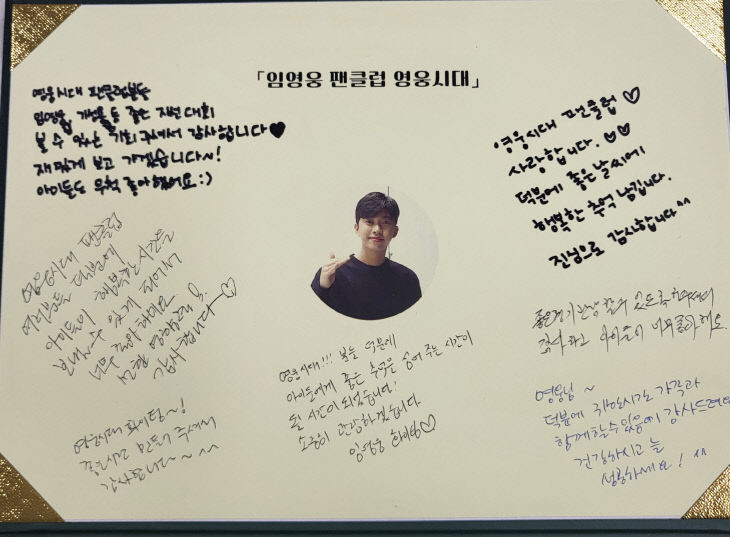 「임영웅 팬클럽 영웅시대」
영웅시대 팬클럽분들
임영웅 기념품 등 좋은 자선 대회
볼 수 있는 기회 주셔서 감사합니다♥
재밌게 보고 가겠습니다~!
아이들도 무척 좋아했어요 :)
영웅시대 팬클럽♡
사랑합니다.♡♡
덕분에 좋은 날씨에
행복한 추억 남깁니다.
진심으로 감사합니다^^
영웅시대 팬클럽
여러분들 덕분에
아이들이 행복한 시간을
보낼 수 있게 되어서
너무 감사하며요
감사합니다~♡
영웅시대!!! 분들 덕분에
아이들에게 좋은 추억을 심어 주는 시간이
될 시간이 되었습니다!
소중히 관람하겠습니다
임영웅 화이팅♡
좋은 경기 관람 할 수 있도록 해주셔서
감사하고 아이들이 너무 좋아해요.
영웅시대 화이팅~!
좋은시간 만들어 주셔서
감사합니다~ ^^
영웅님~
덕분에 귀한시간 가족과
함께할수있음에 감사드려요
건강하시고 늘
행복하세요! ^^